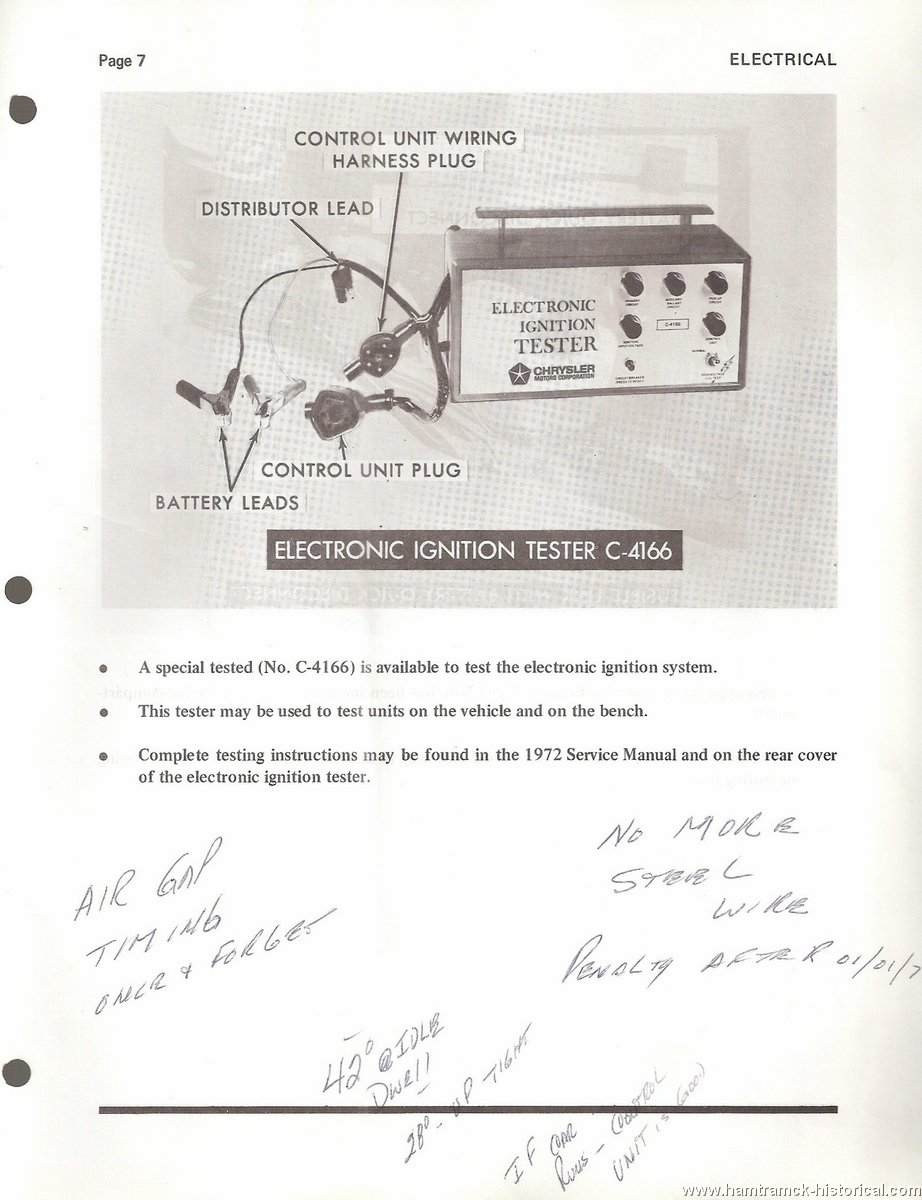 Page 7
ELECTRICAL
CONTROL UNIT WIRING
HARNESS PLUG
DISTRIBUTOR LEAD
ELECTRONIC
IGNITION
TESTER
CHRYSLER
MOTORS CORPORATION
PRIMARY CIRCUIT
AUXILIARY BALLAST CIRCUIT
PICK-UP CIRCUIT
C-4166
CONTROL UNIT
NORMAL
CONTROL UNIT PLUG
BATTERY LEADS
ELECTRONIC IGNITION TESTER C-4166
• A special tested (No. C-4166) is available to test the electronic ignition system.
• This tester may be used to test units on the vehicle and on the bench.
• Complete testing instructions may be found in the 1972 Service Manual and on the rear cover
of the electronic ignition tester.
AIR GAP
TIMING
ONCE & FORGET
NO MORE
STEEL
WIRE
PENALTY AFTER 01/01/7
42° @ IDLE
Dwell
28° - UP TIGHT
IF CAR
RUNS - CONTROL
UNIT IS GOOD
www.hamtramck-historical.com